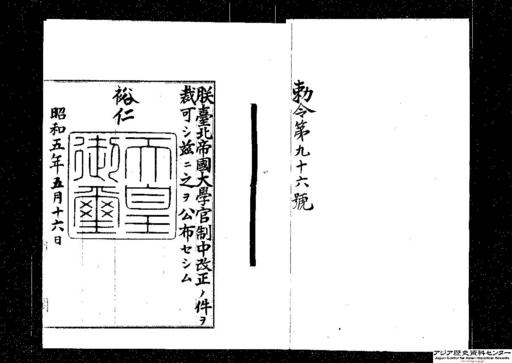 勅令第九十六號
朕臺北帝國大學官制中改正ノ件ヲ
裁可シ茲ニ之ヲ公布セシム
裕仁
天皇
御璽
昭和五年五月十六日
アジア歴史資料センター
Japan Center for Asian Historical Records